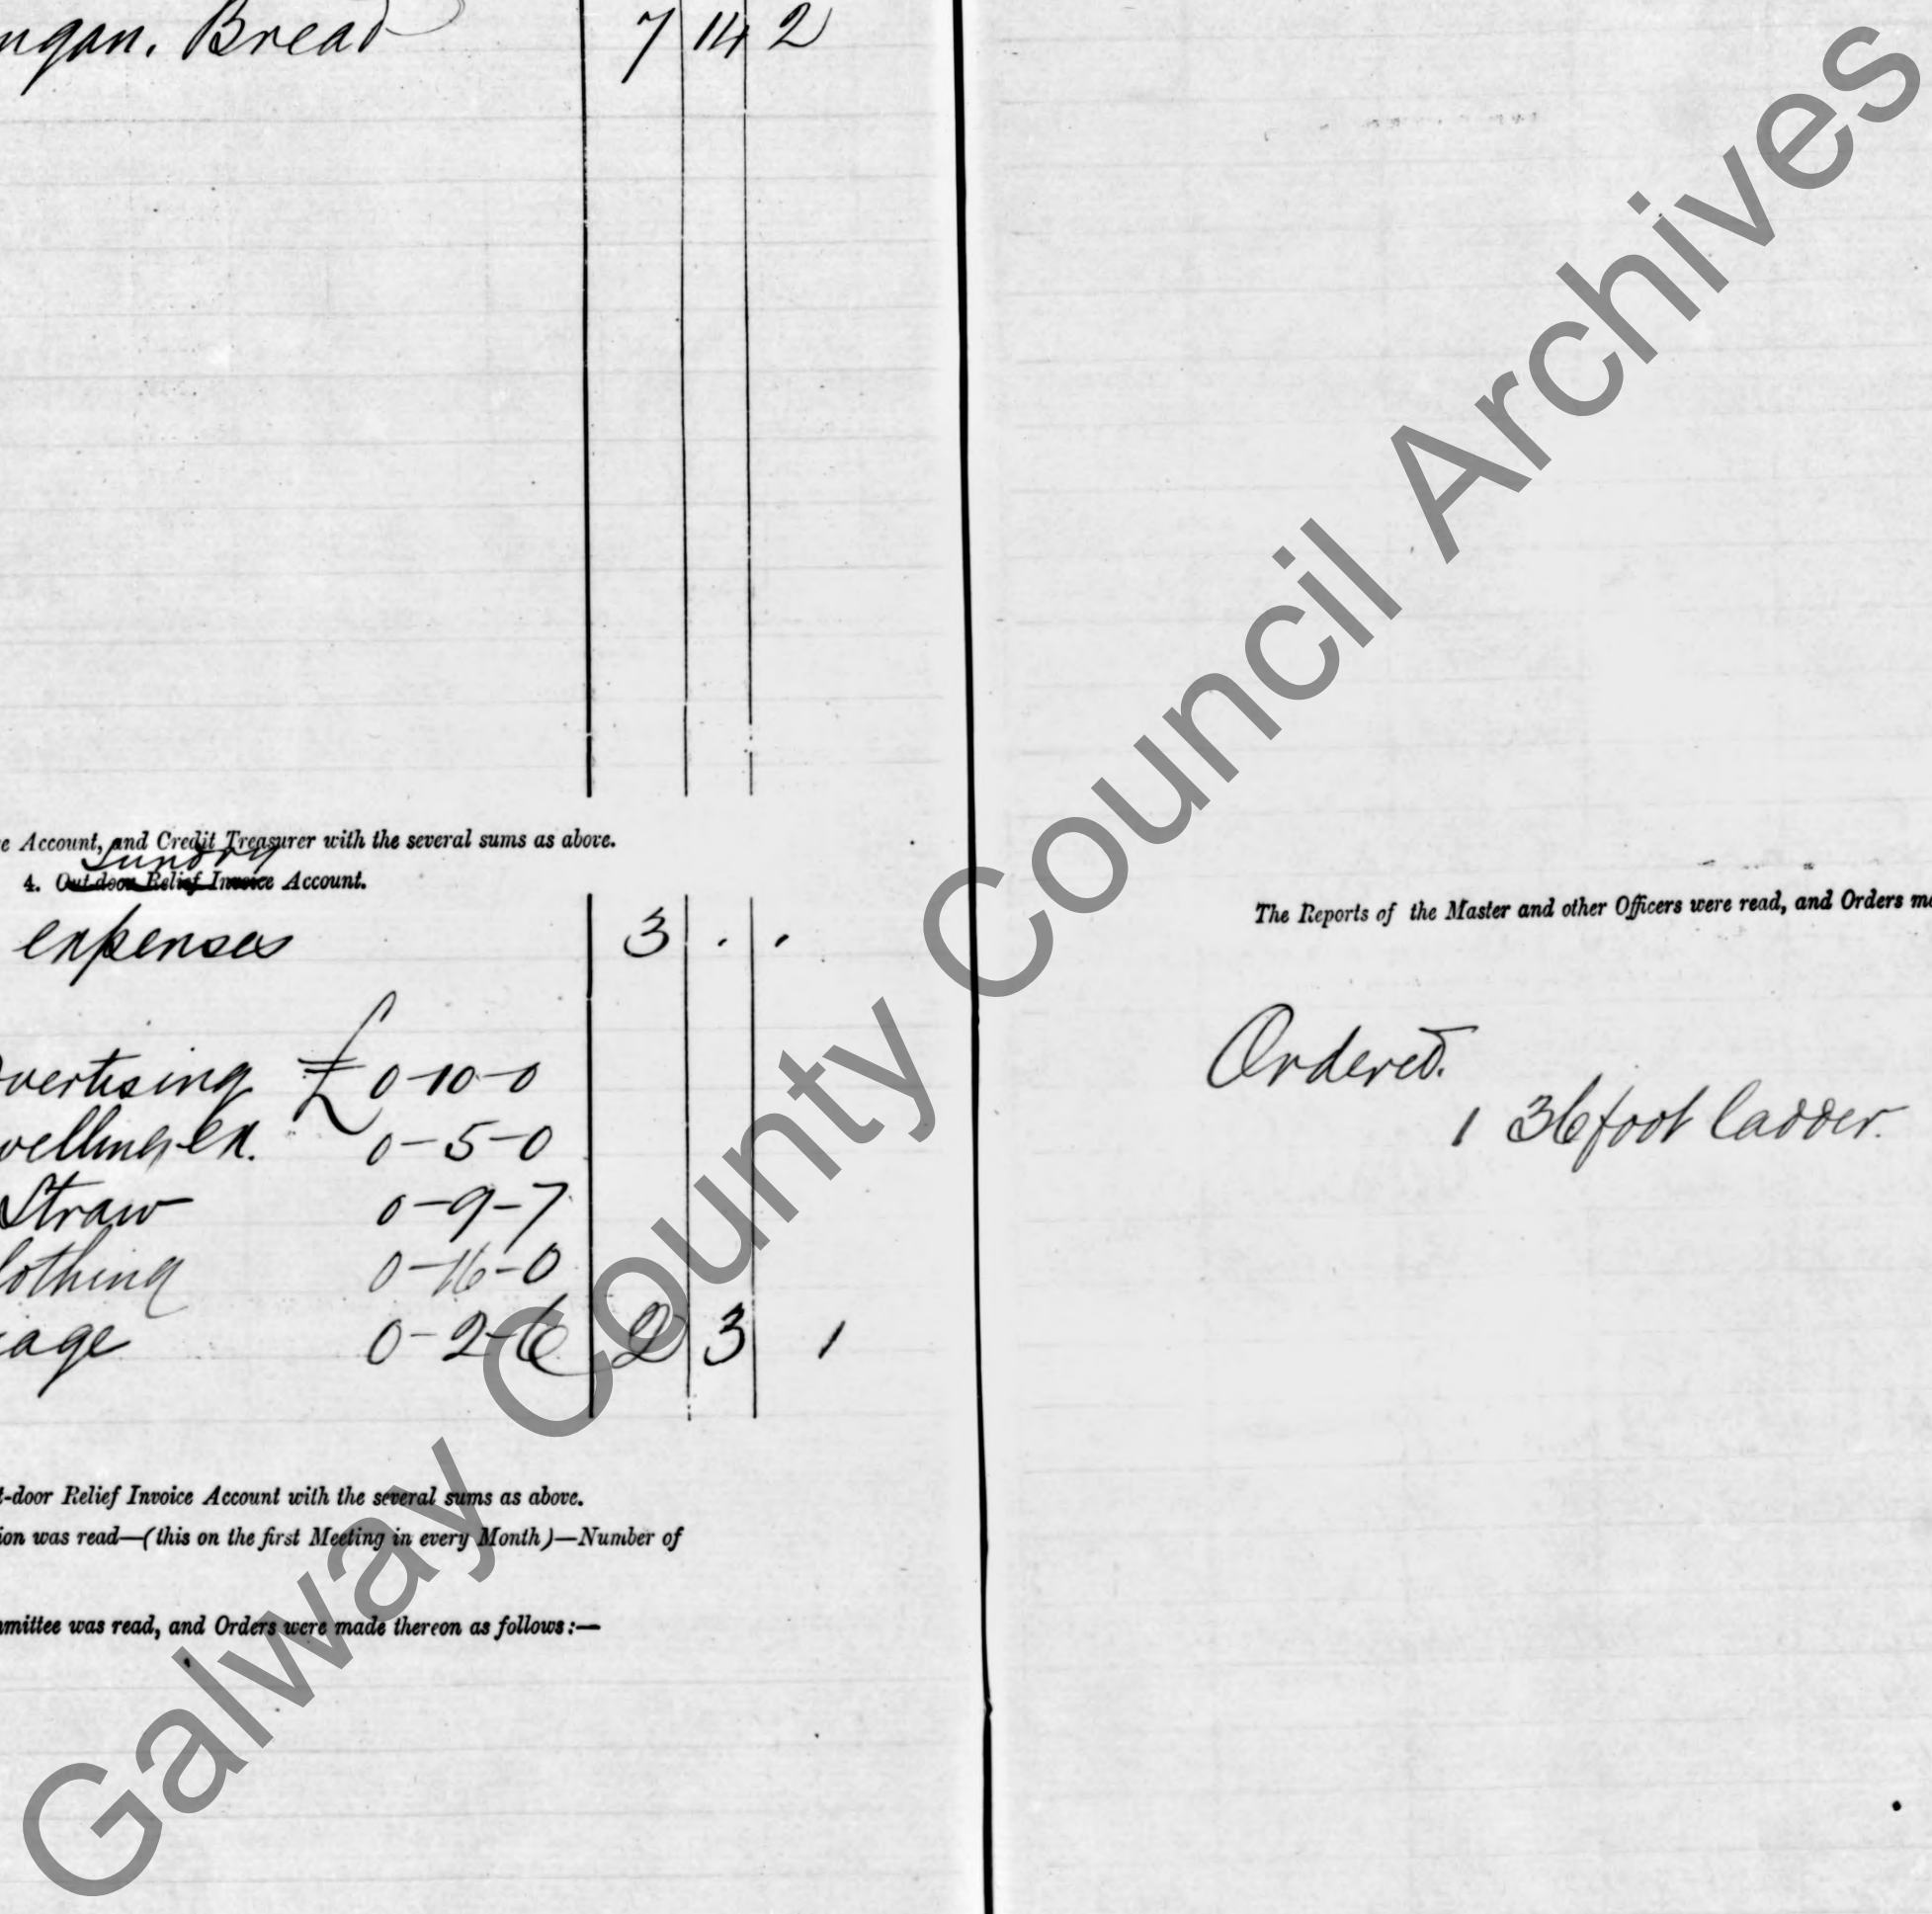 ngan. Bread 7 14 2
e Account, and Credit Treasurer with the several sums as above.
Sundry
4. Out-door Relief Invoice Account.
expenses 3 . .
vertising £ 0-10-0
velling ex. 0-5-0
Straw 0-9-7
lothing 0-16-0
iage 0-2-6 2 3 1
t-door Relief Invoice Account with the several sums as above.
ion was read—(this on the first Meeting in every Month)—Number of
mmittee was read, and Orders were made thereon as follows:—
The Reports of the Master and other Officers were read, and Orders ma
Ordered.
1 36 foot ladder.
Galway County Council Archives